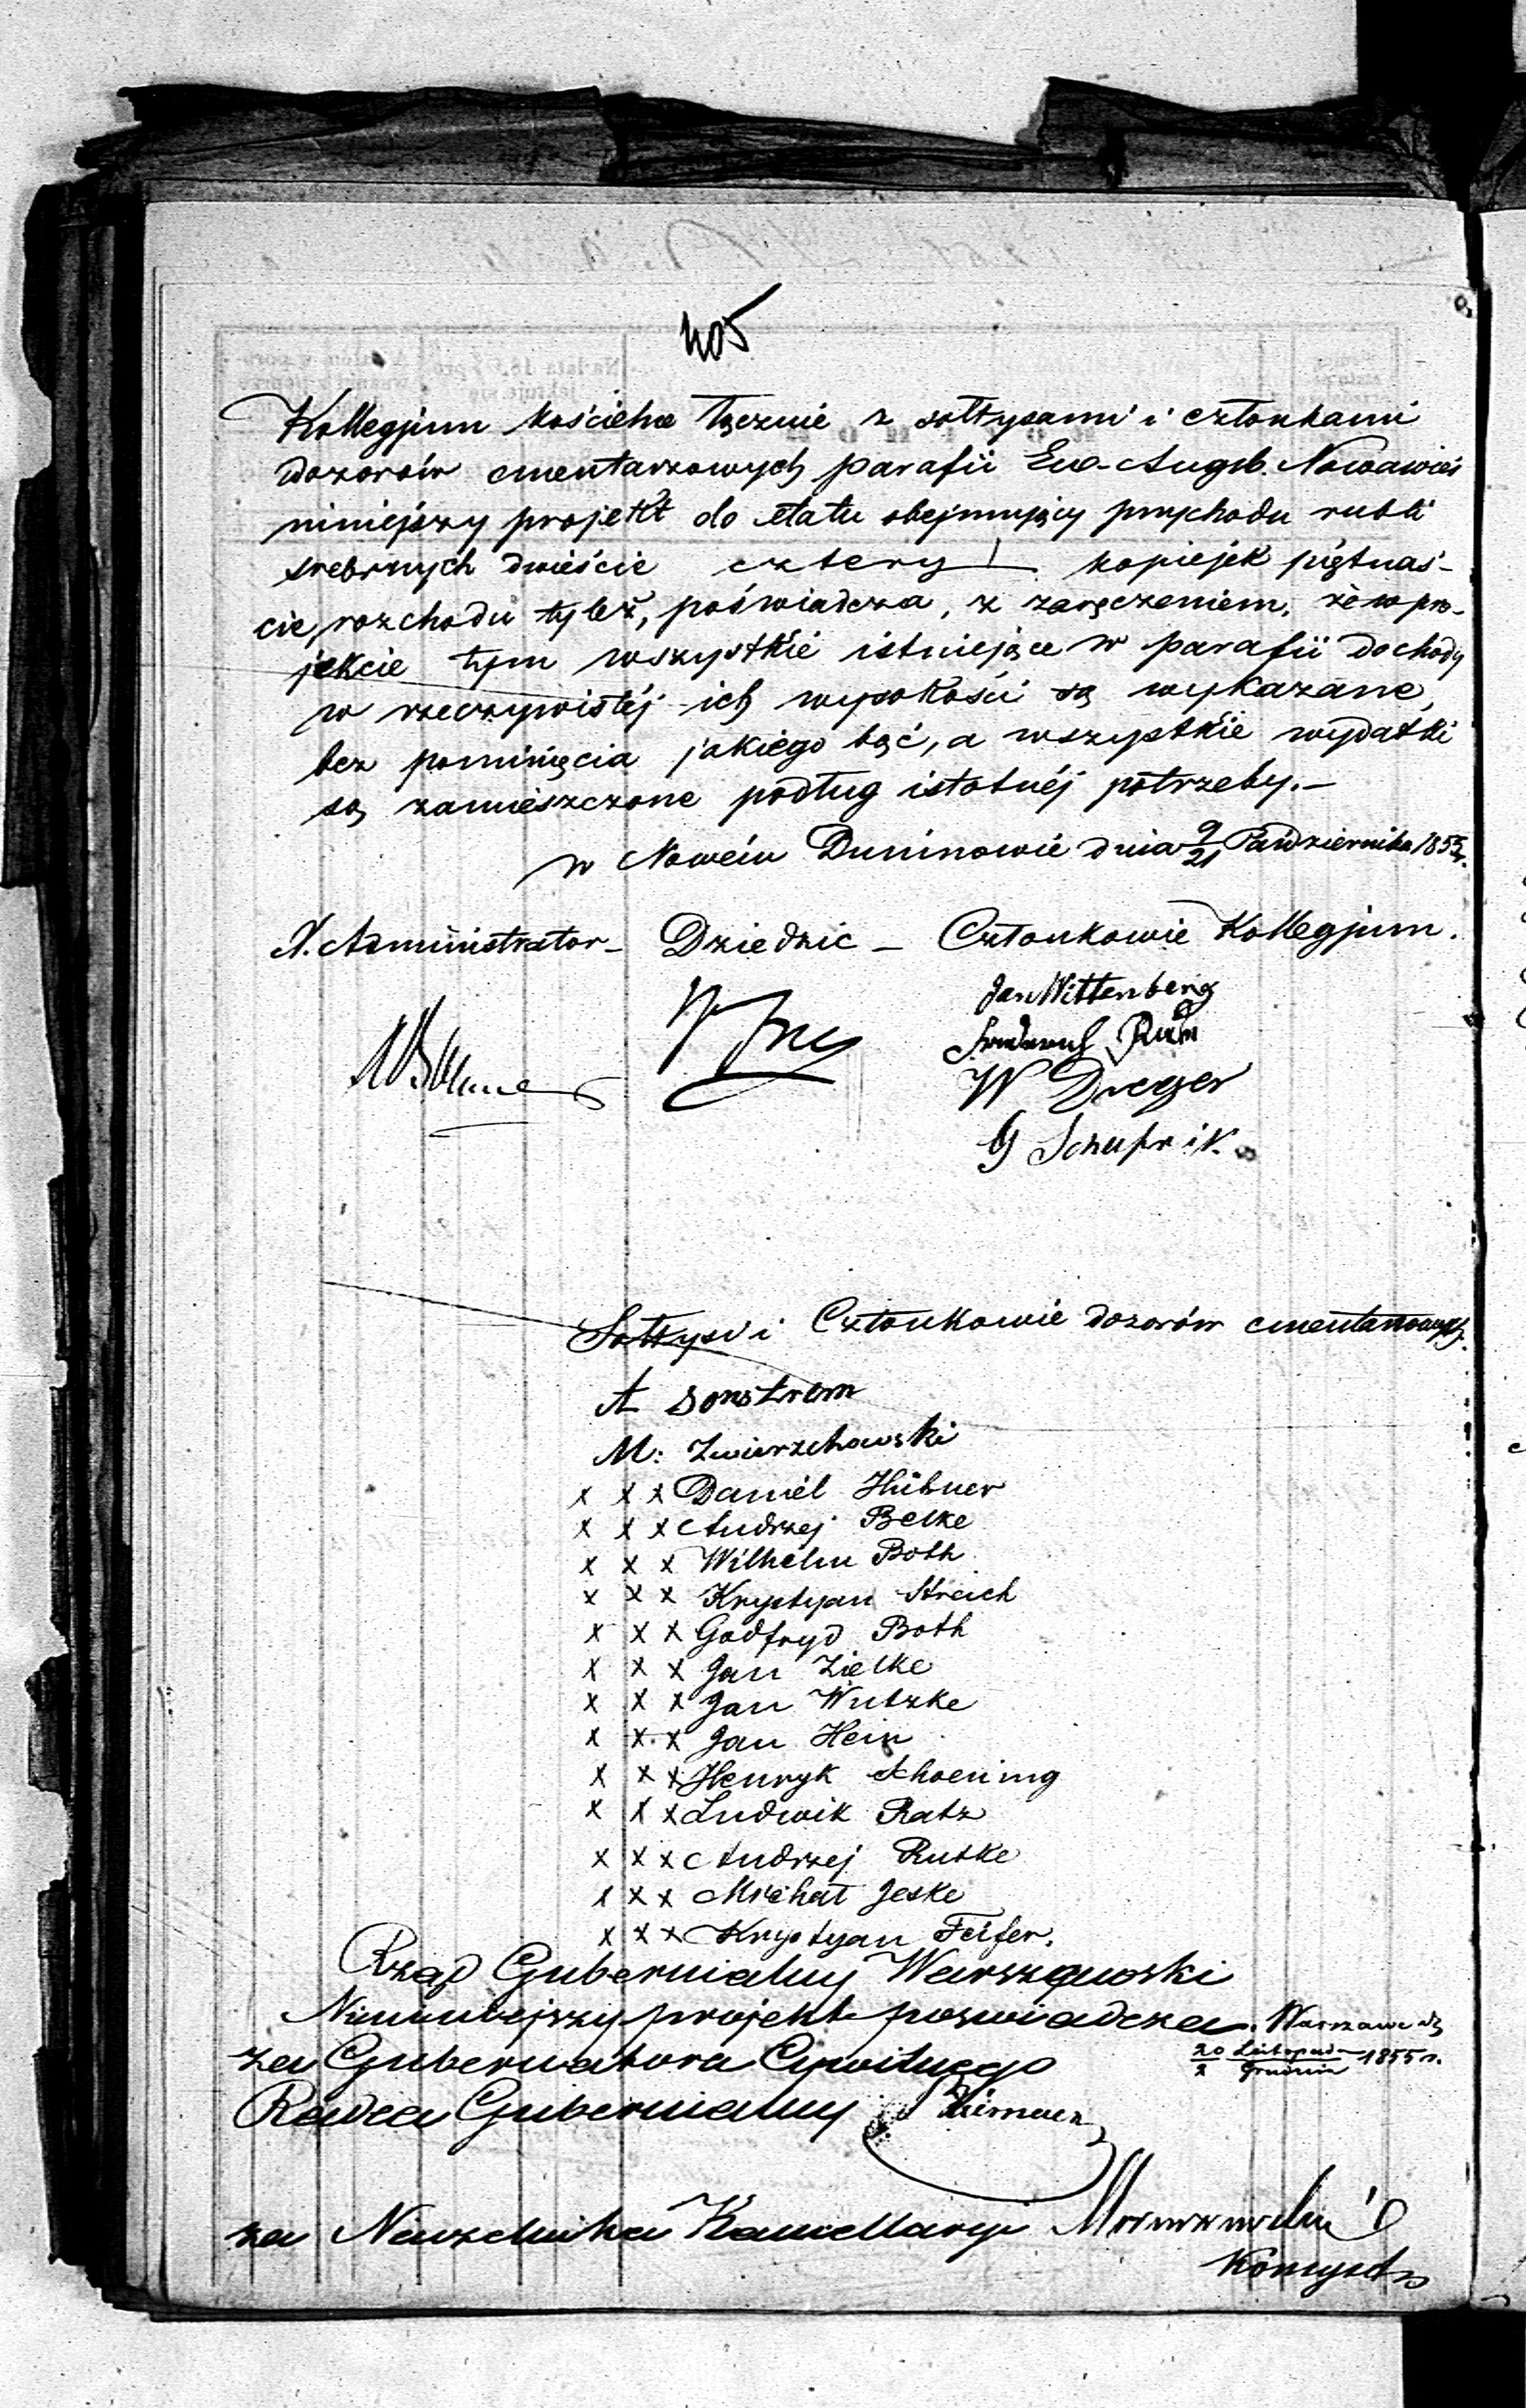 405
Kollegjum kościelne łącznie z sołtysami i członkami
dozorów cmentarzowych parafii Ew-Augsb. Nowawieś
niniejszy projekt do etatu obejmujący przychodu rubli
srebrnych dwieście cztery kopiejek piętnaś-
cie, rozchodu tyleż, poświadcza, z zaręczeniem, że w pro-
jekcie tym wszystkie istniejące w parafii dochody
w rzeczywistéj ich wysokości są wykazane,
bez pominięcia jakiego bąć, a wszystkie wydatki
są zamieszczone podług istotnéj potrzeby.-
w Nowém Duninowie dnia 9/21 Października 1855 r.
X. Administrator - Dziedzic - Członkowie Kollegjum.
Jan Wittenberg
W Dreger
G Schuprik
Sołtysi i Członkowie dozorów cmentarzowych.
A Sonstrom
M: Zwierzchowski
x x x Daniel Hübner
x x x Andrzej Belke
x x x Wilhelm Both
x x x Krystyan Streich
x x x Godfryd Both
x x x Jan Zielke
x x x Jan Wutzke
x x x Jan Hein
x x x Henryk Schoening
x x x Ludwik Ratz
x x x Andrzej Rutke
x x x Michał Jeske
x x x Krystyan Feifer.
Rząd Gubernialny Warszawski
Ninniejszy projekt poswiadcza. Warszawa d.
20/2 Listopad/Grudnia 1855 r.
za Gubernatora Cywilnego
Radca Gubernialny
za Naczelnika Kancellaryi